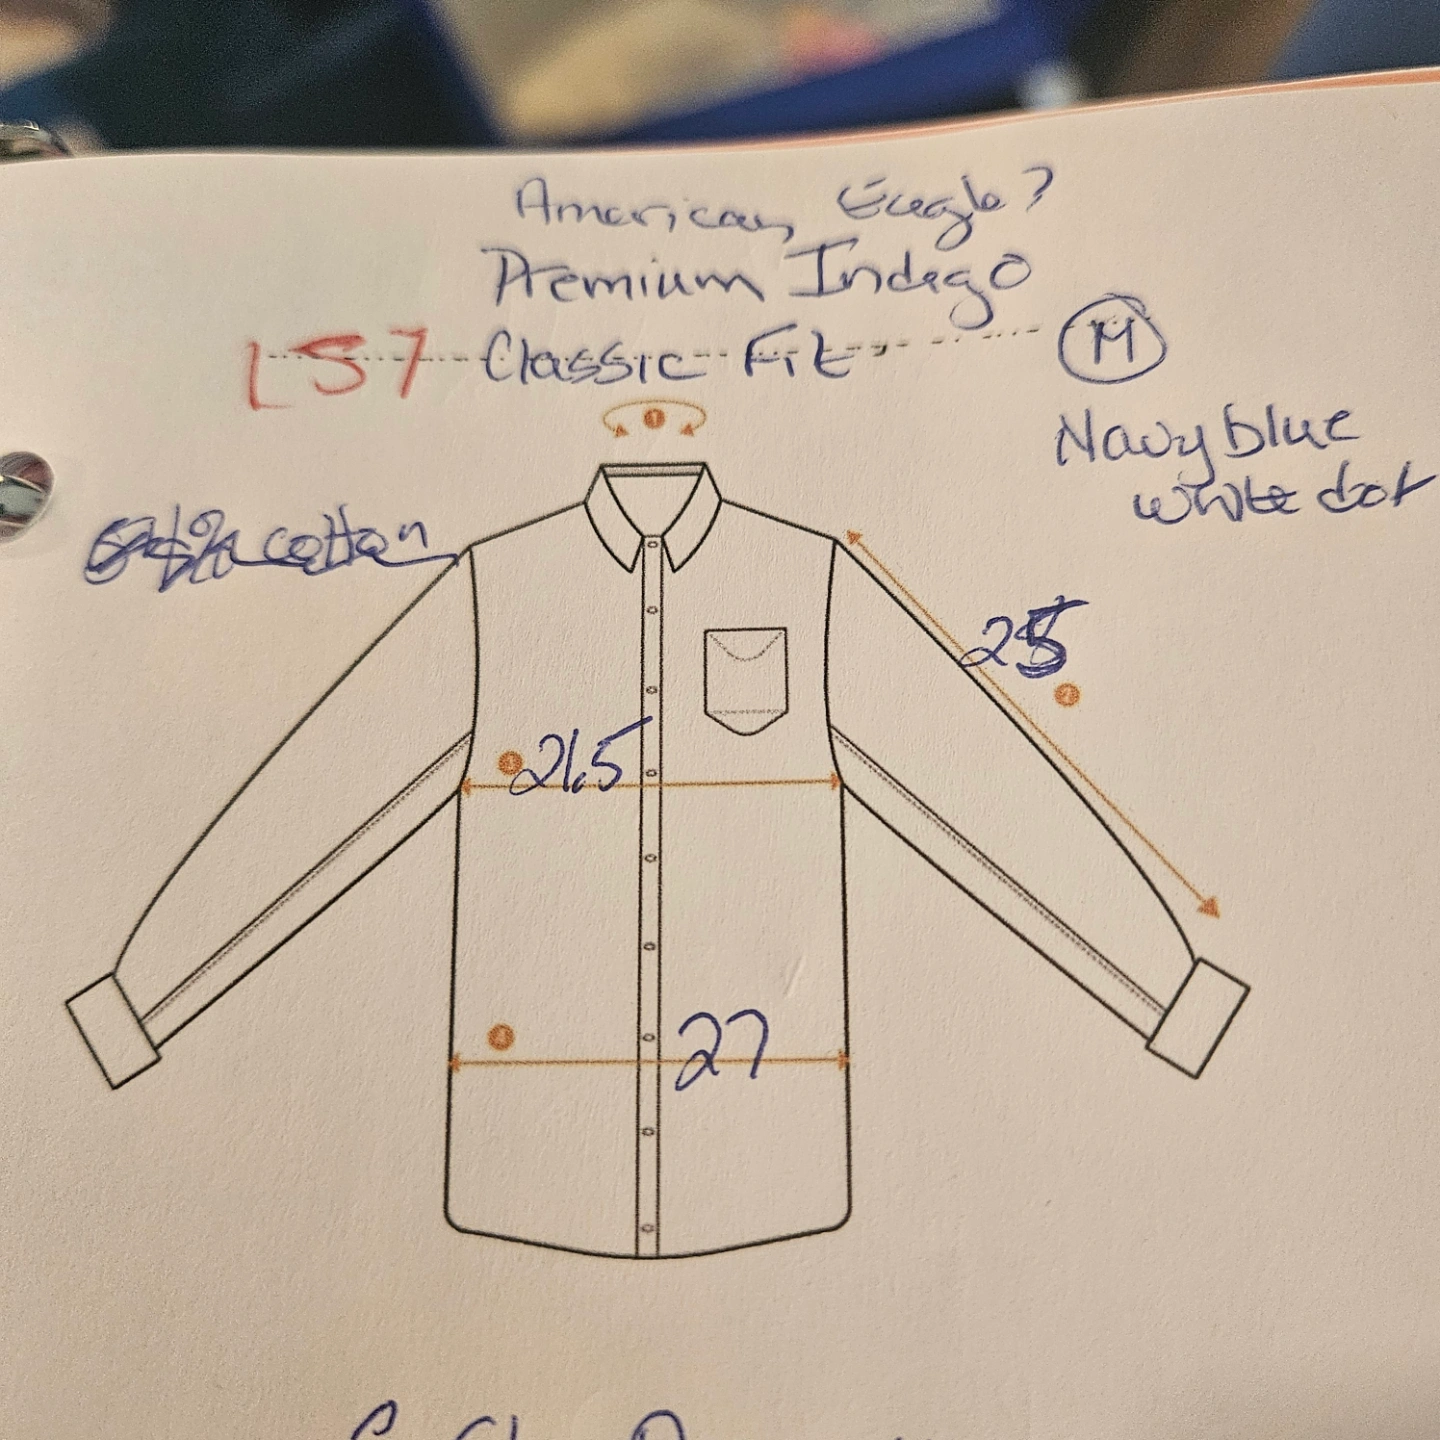 American Eagle?
Premium Indigo
LS7 Classic Fit M
Navy blue
white dot
cotton
25
21.5
27
1
2
3
4